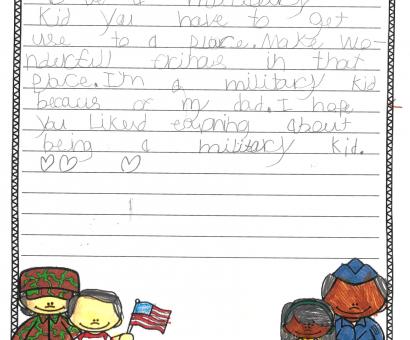 be a military
Kid you have to get
use to a place. Make wo-
nderfull frinds in that
place. I'm a military kid
becaus of my dad. I hope
you likerd about
being a military kid.